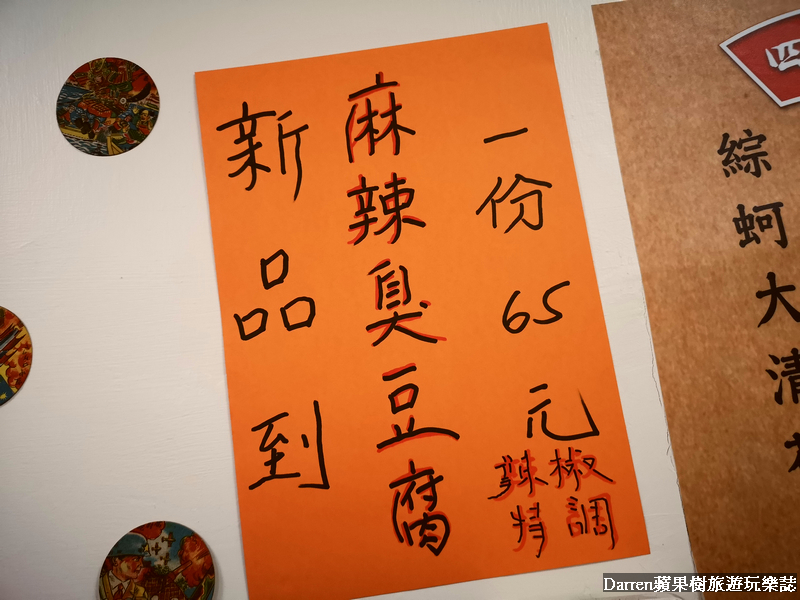 新品到
麻辣臭豆腐
一份65元
辣椒
特調
四
綜
蚵
大
清
Darren蘋果樹旅遊玩樂誌